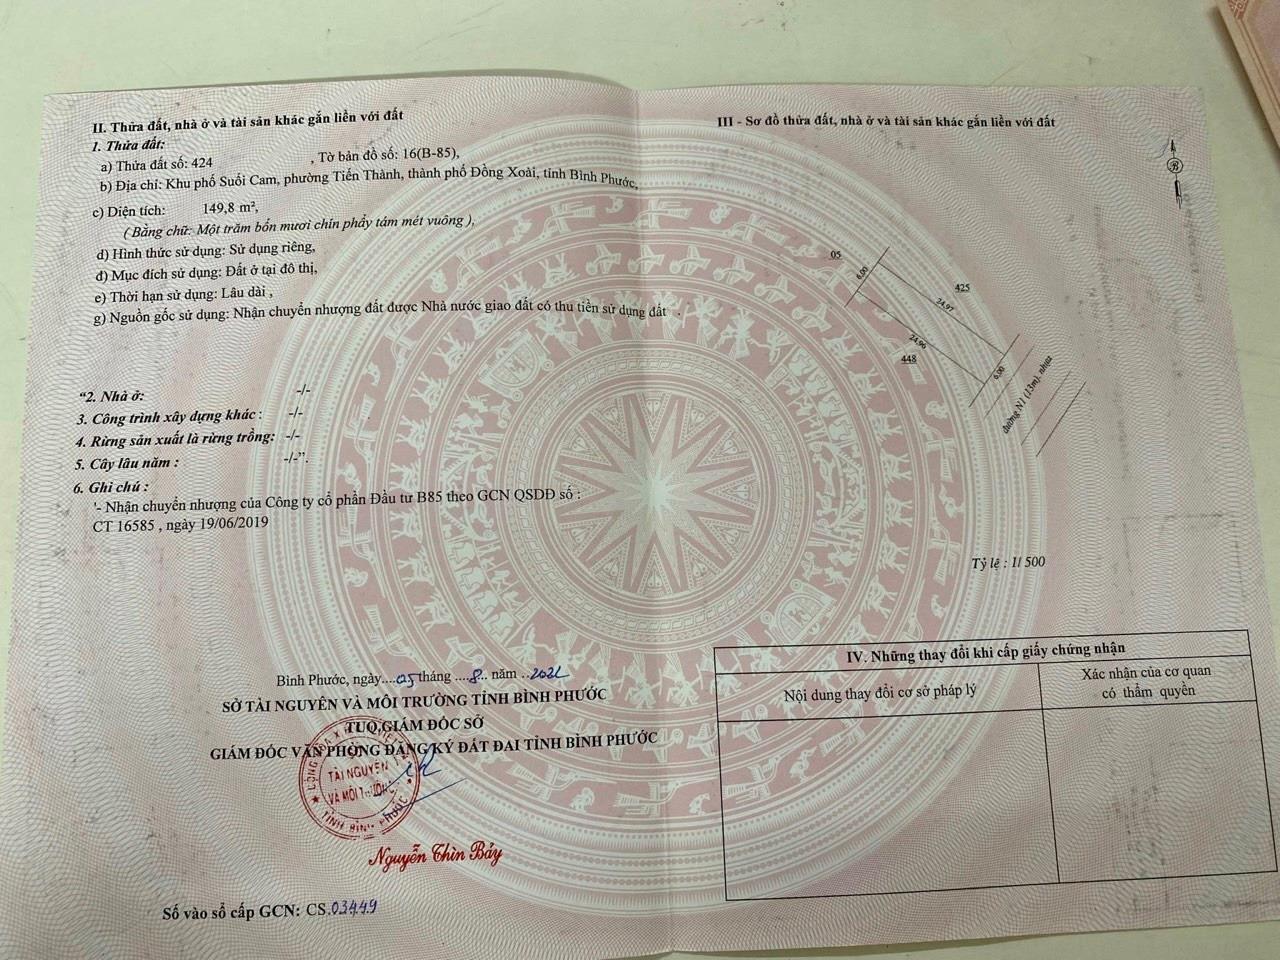 II. Thửa đất, nhà ở và tài sản khác gắn liền với đất
1. Thửa đất:
a) Thửa đất số: 424 , Tờ bản đồ số: 16(B-85),
b) Địa chỉ: Khu phố Suối Cam, phường Tiến Thành, thành phố Đồng Xoài, tỉnh Bình Phước,
c) Diện tích: 149,8 m²,
( Bằng chữ: Một trăm bốn mươi chín phẩy tám mét vuông ),
d) Hình thức sử dụng: Sử dụng riêng,
đ) Mục đích sử dụng: Đất ở tại đô thị,
e) Thời hạn sử dụng: Lâu dài ,
g) Nguồn gốc sử dụng: Nhận chuyển nhượng đất được Nhà nước giao đất có thu tiền sử dụng đất .
“2. Nhà ở: -/-
3. Công trình xây dựng khác : -/-
4. Rừng sản xuất là rừng trồng: -/-
5. Cây lâu năm : -/-”.
6. Ghi chú :
'- Nhận chuyển nhượng của Công ty cổ phần Đầu tư B85 theo GCN QSDĐ số :
CT 16585 , ngày 19/06/2019
Bình Phước, ngày....05 tháng ....8.. năm ..2021
SỞ TÀI NGUYÊN VÀ MÔI TRƯỜNG TỈNH BÌNH PHƯỚC
TUQ.GIÁM ĐỐC SỞ
GIÁM ĐỐC VĂN PHÒNG ĐĂNG KÝ ĐẤT ĐAI TỈNH BÌNH PHƯỚC
TÀI NGUYÊN
VÀ MÔI TRƯỜNG
TỈNH BÌNH PHƯỚC
Nguyễn Thìn Bảy
Số vào sổ cấp GCN: CS.03449
III - Sơ đồ thửa đất, nhà ở và tài sản khác gắn liền với đất
B
05
6,00
425
24,97
24,96
448
6,00
đường N1 (13m), nhựa
Tỷ lệ : 1/ 500
IV. Những thay đổi khi cấp giấy chứng nhận
Nội dung thay đổi cơ sở pháp lý
Xác nhận của cơ quan
có thẩm quyền